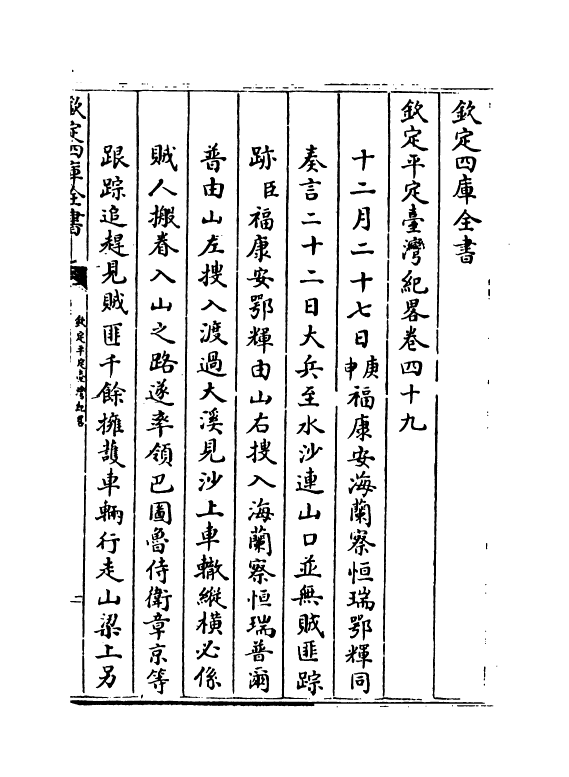 欽定四庫全書
欽定平定臺灣紀畧卷四十九
十二月二十七日庚申福康安海蘭察恒瑞鄂輝同
奏言二十二日大兵至水沙連山口並無賊匪踪
跡臣福康安鄂輝由山右搜入海蘭察恒瑞普爾
普由山左搜入渡過大溪見沙上車轍縱橫必係
賊人搬眷入山之路遂率領巴圖魯侍衛章京等
跟踪追趕見賊匪千餘擁護車輛行走山梁上另
欽定四庫全書
欽定平定臺灣紀畧